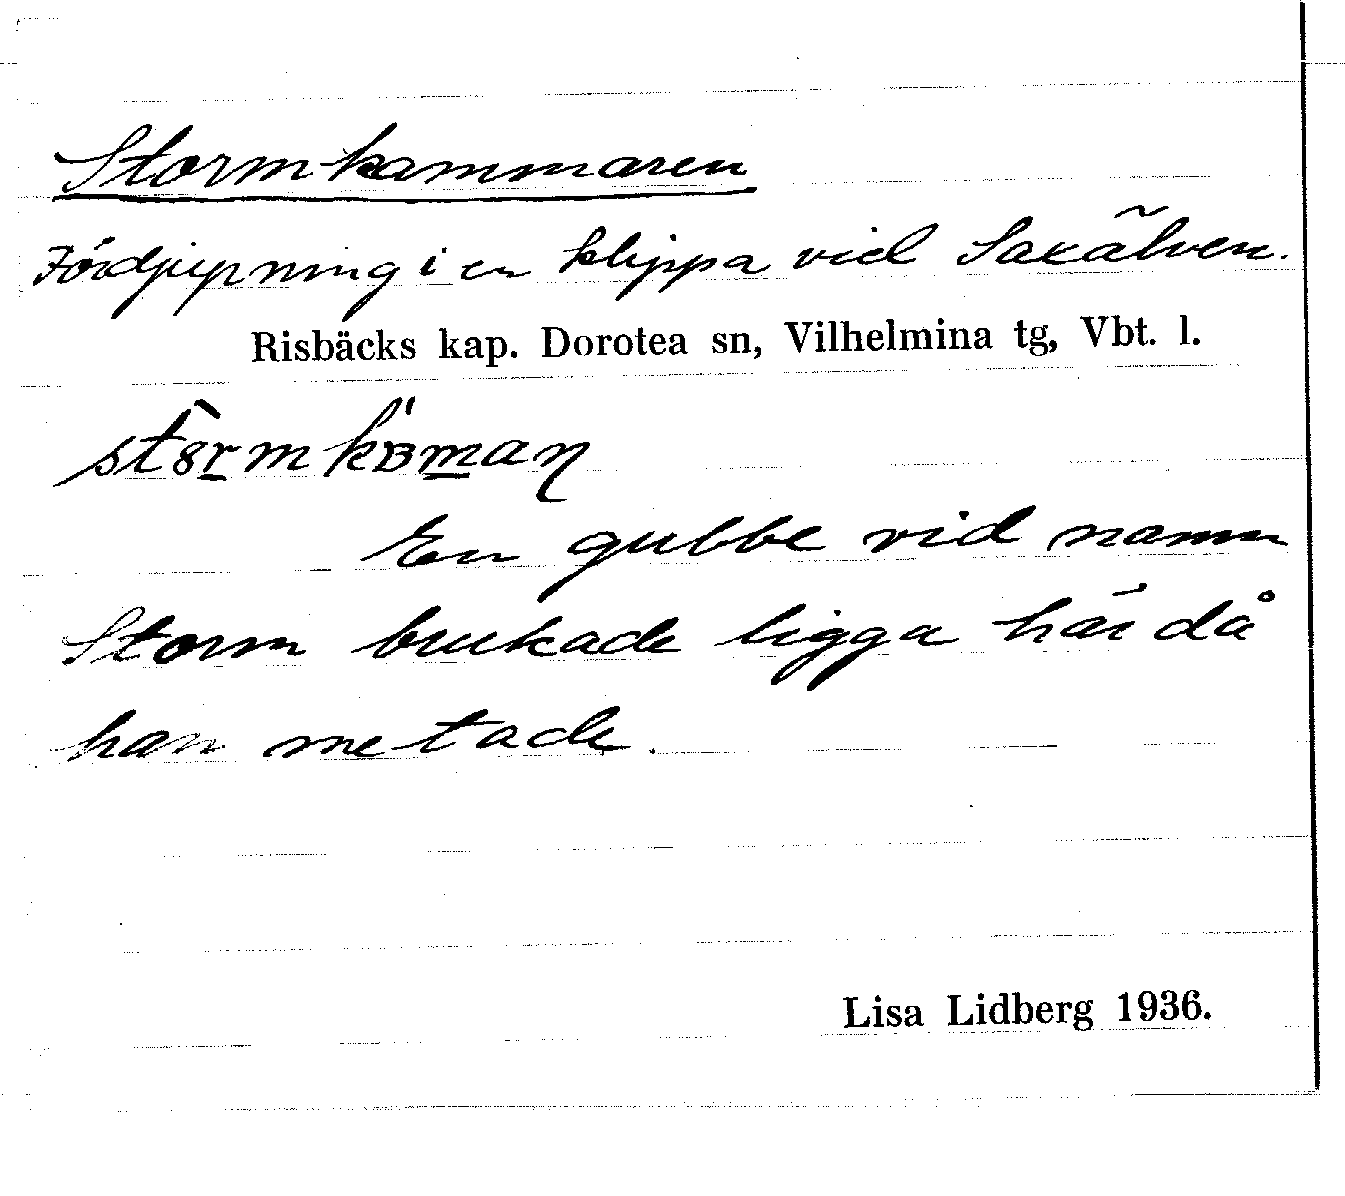 Storm-kammaren
Fördjupning i en klippa vid Saxälven.
Risbäcks kap. Dorotea sn, Vilhelmina tg, Vbt. l.
En gubbe vid namn
Storm brukade ligga här då
han metade.
Lisa Lidberg 1936.